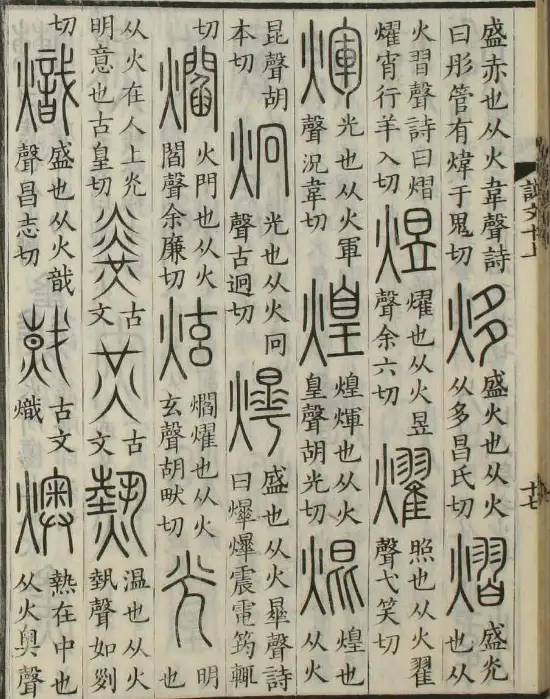 盛赤也从火韋聲詩曰彤管有煒于鬼切 㶴 盛火也从火从多昌氏切 熠 盛光也从
火習聲詩曰熠燿宵行羊入切 煜 燿也从火昱聲余六切 燿 照也从火翟聲弋笑切
煇 光也从火軍聲況韋切 煌 煌煇也从火皇聲胡光切 焜 煌也从火
昆聲胡本切 炯 光也从火冋聲古迥切 爗 盛也从火曅聲詩曰爗爗震電筠輒
切 爓 火門也从火閻聲余廉切 炫 爓燿也从火玄聲胡畎切 光 明也
从火在人上光明意也古皇切 𤎫 古文 炗 古文 熱 温也从火埶聲如劣
切 熾 盛也从火戠聲昌志切 𢧄 古文熾 燠 熱在中也从火奧聲
說文十上
十七